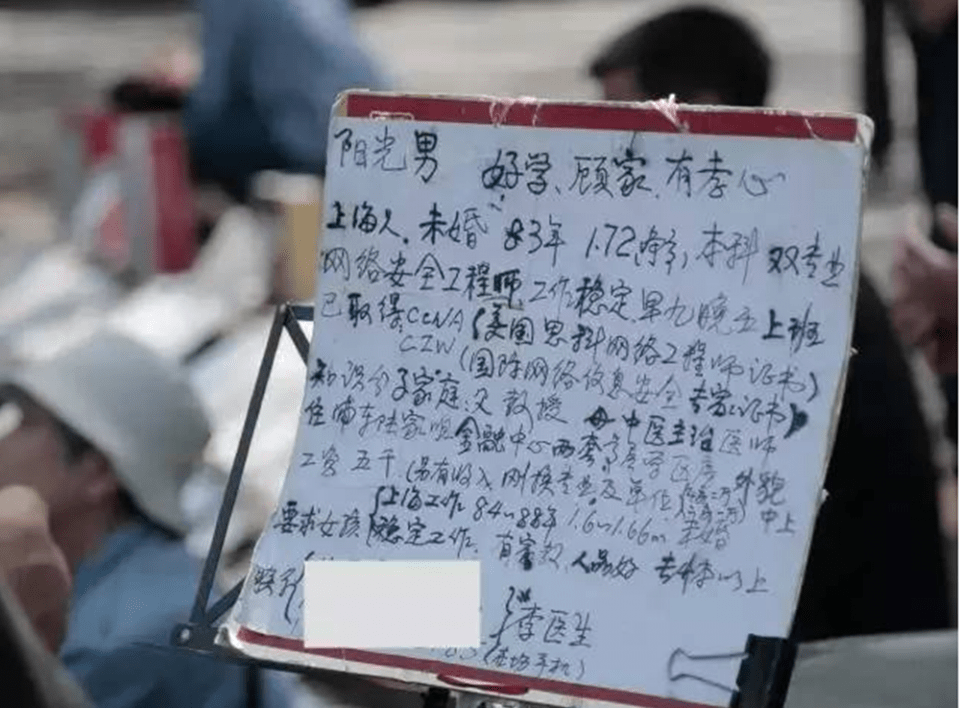 阳光男 好学、顾家、有孝心
上海人,未婚 83年 1.72 本科 双专业
网络安全工程师,工作稳定,早九晚五上班
已取得,CCNA(美国思科网络工程师证书)
CIW(国际网络信息安全专家证书)
知识分子家庭:父教授 母中医主治医师
住浦东陆家咀金融中心两套 学区房 外貌中上
工资五千(另有收入,刚换专业及单位
要求女孩 上海工作 84~88年 1.6~1.66m 未婚
稳定工作,有 人品好 专 以上
联系
李医生
(本地手机)